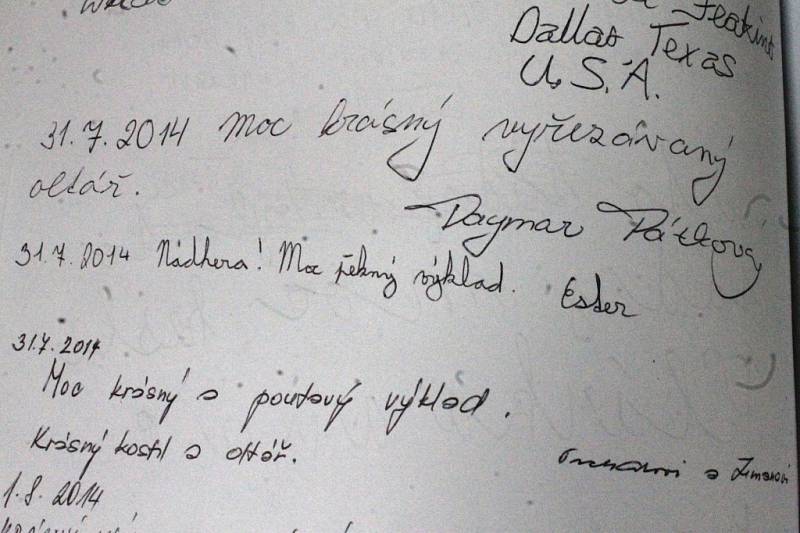 Dallas Texas
U.S.A.
31.7.2014 Moc krásný vyřezávaný
oltář.
Dagmar Pátková
31.7.2014 Nádhera! Moc pěkný výklad. Ester
31.7.2014
Moc krásný a poutavý výklad.
Krásný kostel a oltář.
a Zemanovi
1.8.2014